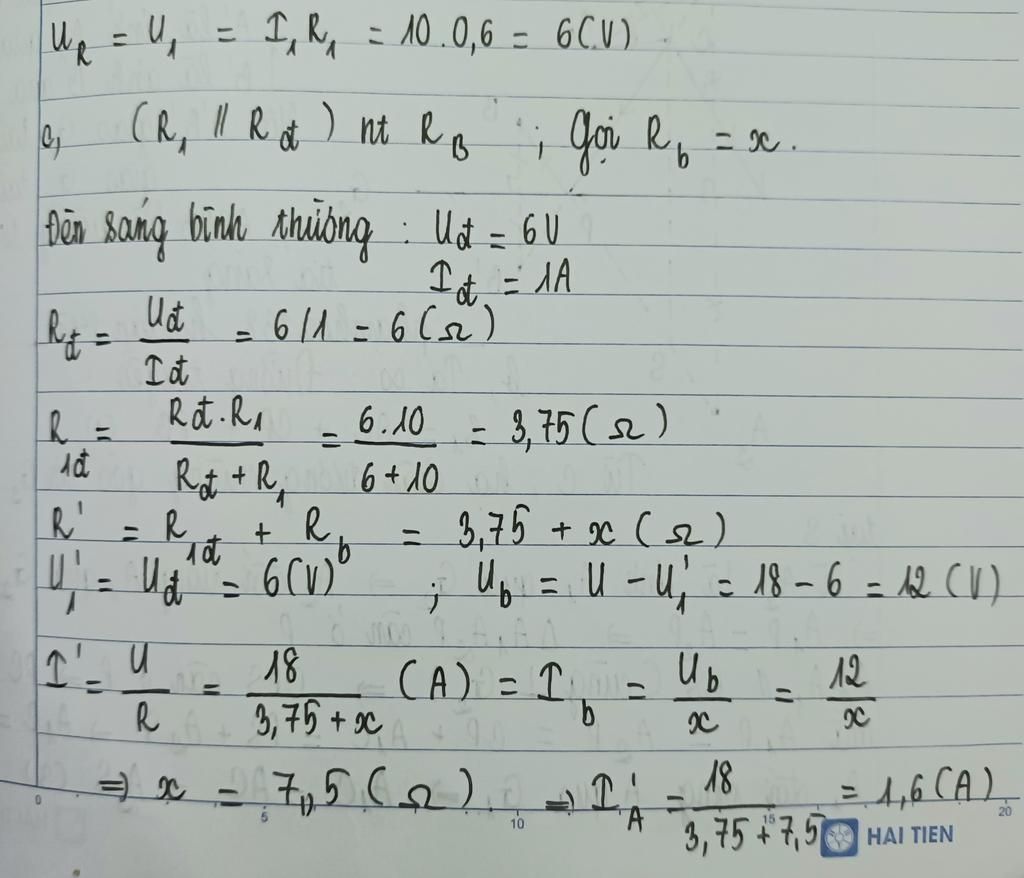 U_R = U_1 = I_1 R_1 = 10 . 0,6 = 6(V)
c, (R_1 // R_đ) nt R_B ; Gọi R_b = x.
Đèn sáng bình thường : U_đ = 6V
I_đ = 1A
R_đ = U_đ / I_đ = 6/1 = 6(Ω)
R_1đ = (R_đ . R_1) / (R_đ + R_1) = (6.10) / (6 + 10) = 3,75(Ω)
R' = R_1đ + R_b = 3,75 + x (Ω)
U_1' = U_đ = 6(V) ; U_b = U - U_1' = 18 - 6 = 12 (V)
I' = U / R = 18 / (3,75 + x) (A) = I_b = U_b / x = 12 / x
⇒ x = 7,5 (Ω) ⇒ I_A' = 18 / (3,75 + 7,5) = 1,6(A)
0 5 10 15 20
HAI TIEN